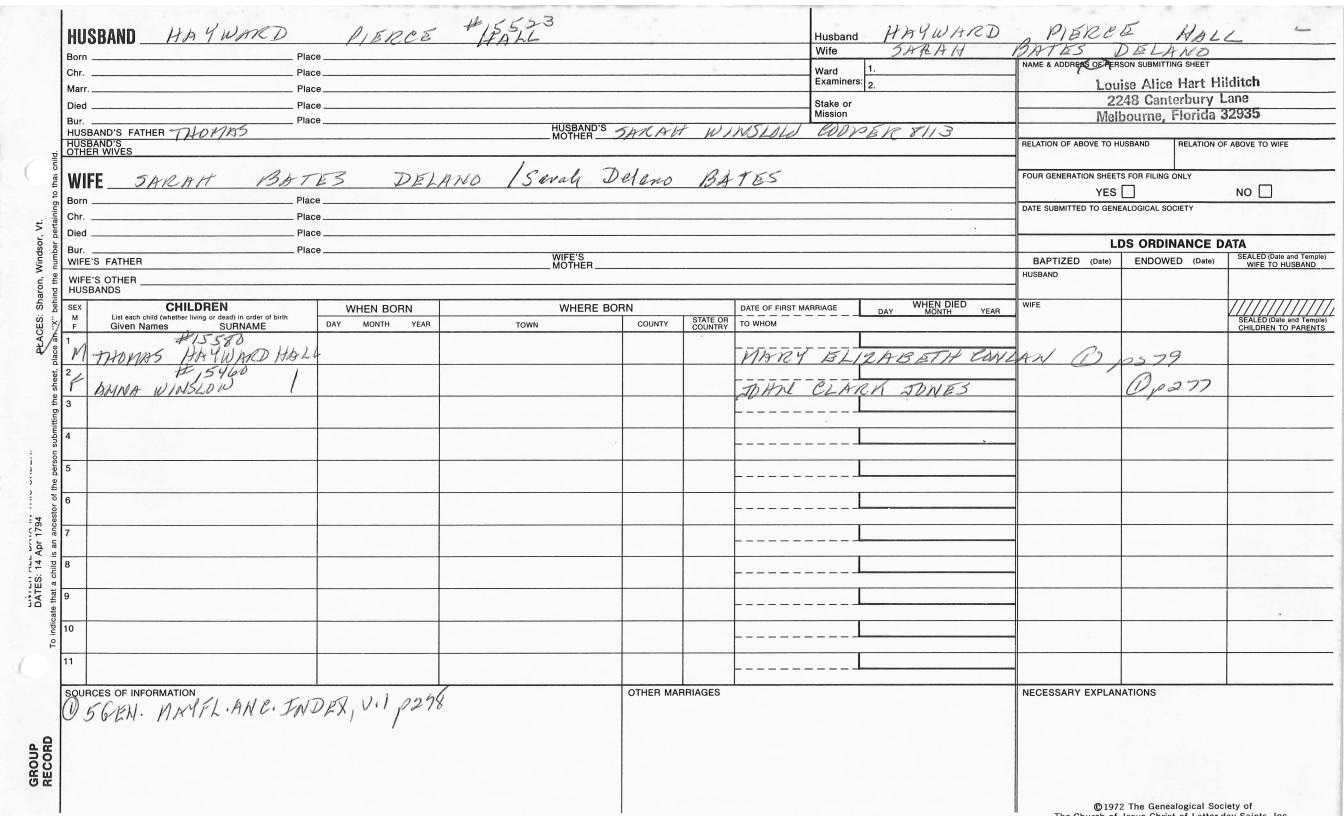 HUSBAND HAYWARD PIERCE HALL #15523
Born Place
Chr. Place
Marr. Place
Died Place
Bur. Place
HUSBAND'S FATHER THOMAS HUSBAND'S MOTHER SARAH WINSLOW COOPER 8113
HUSBAND'S OTHER WIVES
WIFE SARAH BATES DELANO / Sarah Delano BATES
Born Place
Chr. Place
Died Place
Bur. Place
WIFE'S FATHER WIFE'S MOTHER
WIFE'S OTHER HUSBANDS
Husband HAYWARD PIERCE HALL –
Wife SARAH BATES DELANO
Ward Examiners: 1.
2.
Stake or Mission
NAME & ADDRESS OF PERSON SUBMITTING SHEET
Louise Alice Hart Hilditch
2248 Canterbury Lane
Melbourne, Florida 32935
RELATION OF ABOVE TO HUSBAND RELATION OF ABOVE TO WIFE
FOUR GENERATION SHEETS FOR FILING ONLY
YES NO
DATE SUBMITTED TO GENEALOGICAL SOCIETY
LDS ORDINANCE DATA
BAPTIZED (Date) ENDOWED (Date) SEALED (Date and Temple) WIFE TO HUSBAND
HUSBAND
WIFE
SEALED (Date and Temple) CHILDREN TO PARENTS
SEX M F
CHILDREN
List each child (whether living or dead) in order of birth
Given Names SURNAME
WHEN BORN
DAY MONTH YEAR
WHERE BORN
TOWN COUNTY STATE OR COUNTRY
DATE OF FIRST MARRIAGE
TO WHOM
WHEN DIED
DAY MONTH YEAR
1
#15580
M THOMAS HAYWARD HALL MARY ELIZABETH CONLAN ① p279
2
#15460
F ANNA WINSLOW JOHN CLARK JONES ① p277
3
4
5
6
7
8
9
10
11
SOURCES OF INFORMATION
① 5GEN. MAYFL. ANC. INDEX, V.1 p278
OTHER MARRIAGES
NECESSARY EXPLANATIONS
©1972 The Genealogical Society of
The Church of Jesus Christ of Latter-day Saints, Inc.
PLACES: Sharon, Windsor, Vt.
DATES: 14 Apr 1794
To indicate that a child is an ancestor of the person submitting the sheet, place an "X" behind the number pertaining to that child.
GROUP RECORD